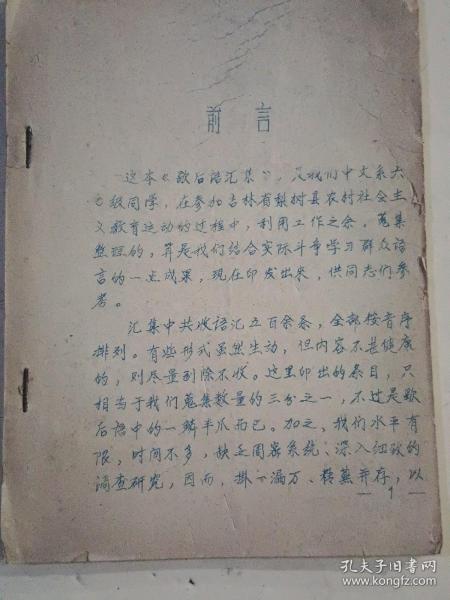 前言
这本《歇后语汇集》,是我们中文系六
〇级同学,在参加吉林省梨树县农村社会主
义教育运动的过程中,利用工作之余,蒐集
整理的,算是我们结合实际斗争学习群众语
言的一点成果,现在印发出来,供同志们参
考。
汇集中共收语汇五百余条,全部按音序
排列。有些形式虽然生动,但内容不甚健康
的,则尽量剔除不收。这里印出的条目,只
相当于我们蒐集数量的三分之一,不过是歇
后语中的一鳞半爪而已。加之,我们水平有
限,时间不多,缺乏周密系统、深入细致的
调查研究,因而,挂一漏万、精芜并存,以
—1—
孔夫子旧书网
www.kongfz.com